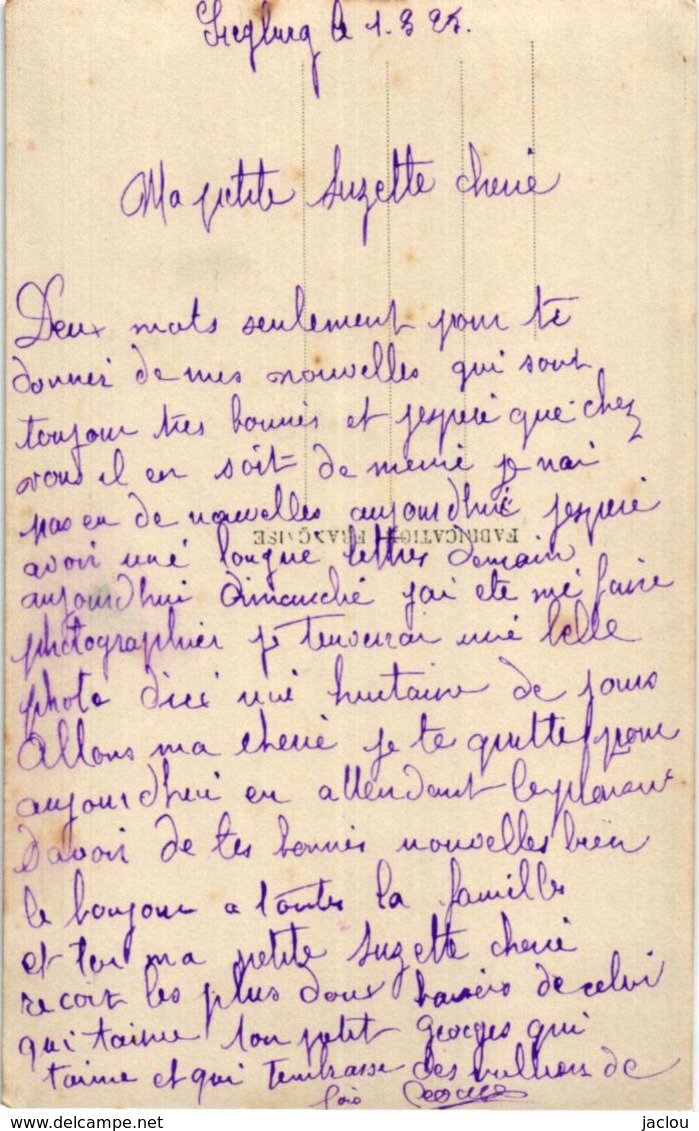 Siegburg le 1.3.25.
Ma petite Suzette cherie
Deux mots seulement pour te
donner de mes nouvelles qui sont
toujour tres bonnes et jespere que chez
vous il en soit de meme je nai
pas eu de nouvelles aujourdhui jespere
FABRICATION FRANÇAISE
avoir une longue lettres demain
aujourdhui dimanche jai ete me faire
photographier je tenverai une belle
photo dici une huitaine de jours
Allons ma cherie je te quitte pour
aujourdhui en attendant le plaisir
davoir de tes bonnes nouvelles bien
le bonjour a toutes la familles
et toi ma petite Suzette cherie
recoit les plus doux baisers de celui
qui taime ton petit Georges qui
taime et qui tembrasse des millions de
fois Georges
jaclou